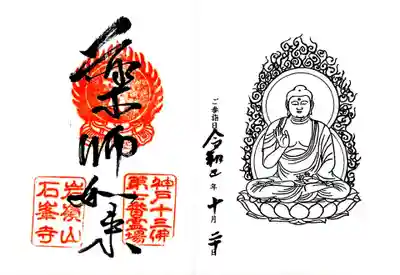 薬師如来
神戸十三佛
第七番霊場
岩嶺山
石峯寺
ご参詣日 令和 年 十月 日